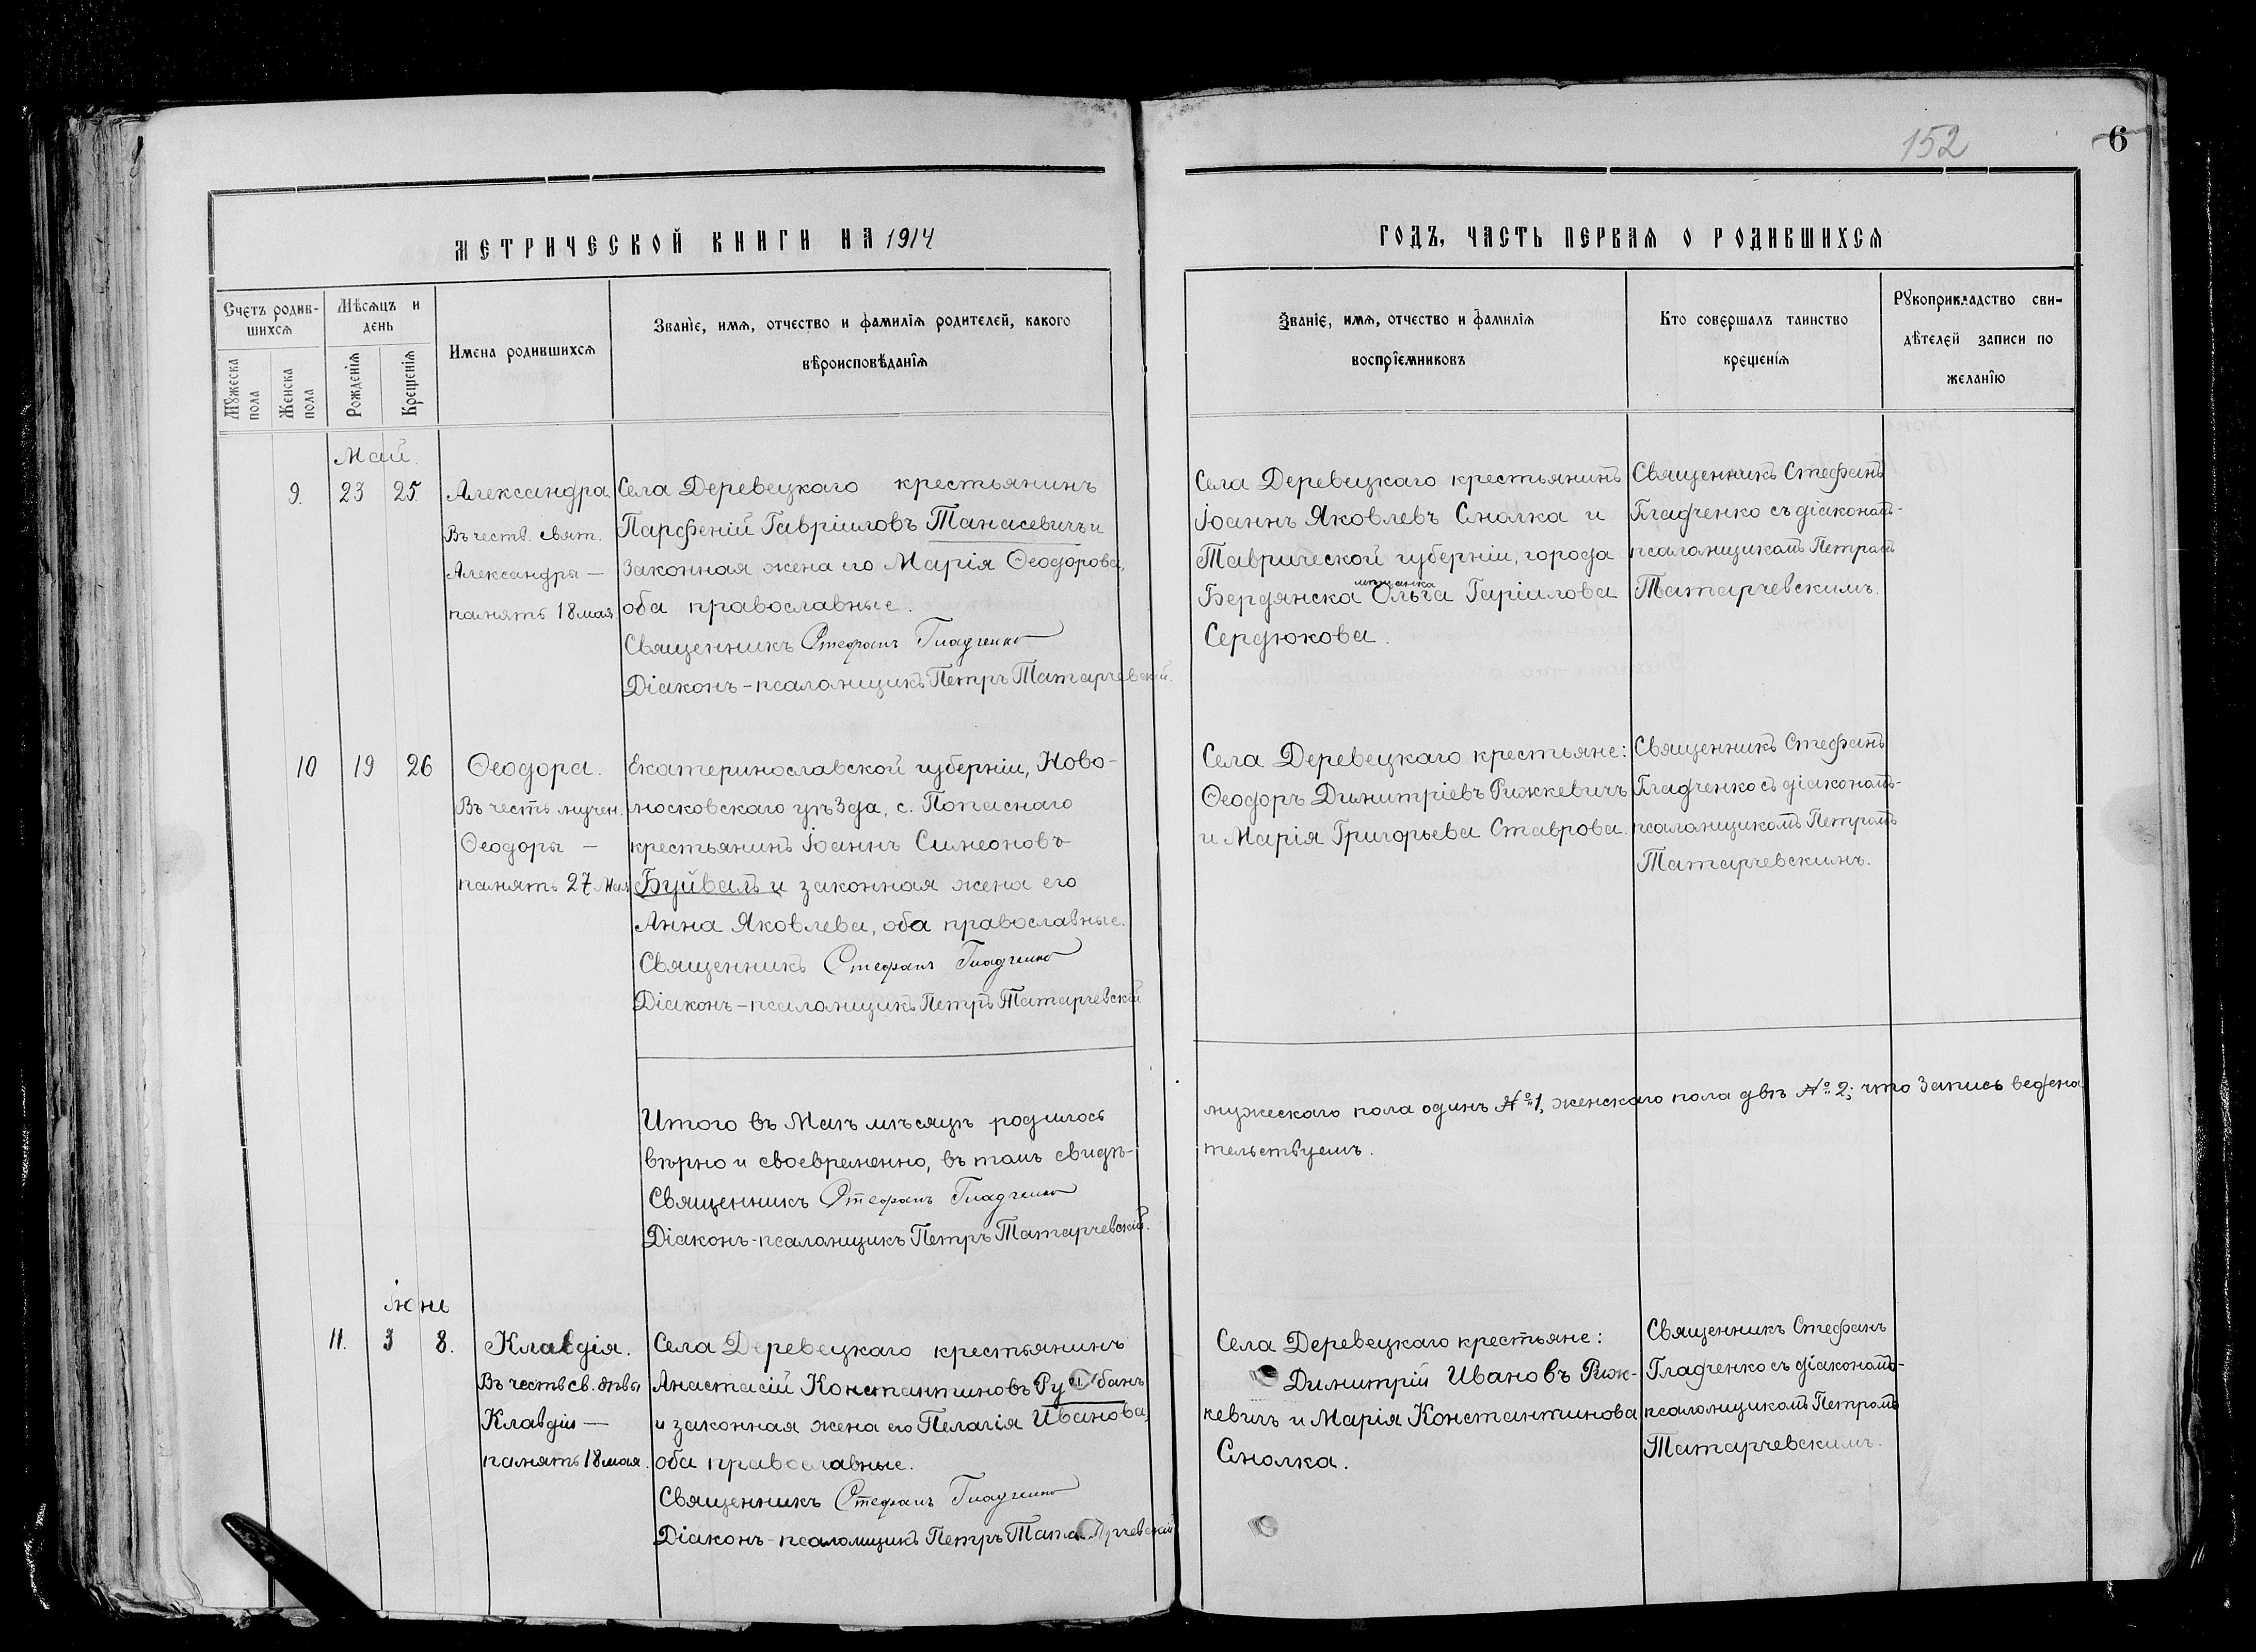 152
6
МЕТРИЧЕСКОЙ КНИГИ НА 1914
ГОДЪ, ЧАСТЬ ПЕРВАЯ О РОДИВШИХСЯ
Счетъ родив-
шихся
Мѣсяцъ и
день
Мужеска
пола
Женска
пола
Рожденія
Крещенія
Имена родившихся
Званіе, имя, отчество и фамилія родителей, какого
вѣроисповѣданія
Званіе, имя, отчество и фамилія
воспріемниковъ
Кто совершалъ таинство
крещенія
Рукоприкладство сви-
дѣтелей записи по
желанію
Май.
9. 23 25.
Александра
Въ честь свят.
Александры —
память 18 мая.
Села Деревецкаго крестьянинъ
Парѳеній Гавріиловъ Танасевичъ и
законная жена его Марія Ѳеодорова,
оба православные.
Священникъ Стефанъ Гладченко
Діаконъ-псаломщикъ Петръ Татарчевскій.
Села Деревецкаго крестьянинъ
Іоаннъ Яковлевъ Смолка и
Таврической губерніи, города
Бердянска мѣщанка Ольга Гаріилова
Сердюкова.
Священникъ Стефанъ
Гладченко съ діакономъ-
псаломщикомъ Петромъ
Татарчевскимъ.
10 19 26
Ѳеодора.
Въ честь мучен.
Ѳеодоры —
память 27 Мая
Екатеринославской губерніи, Ново-
московскаго уѣзда, с. Попаснаго
крестьянинъ Іоаннъ Симеоновъ
Буйвалъ и законная жена его
Анна Яковлева, оба православные.
Священникъ Стефанъ Гладченко
Діаконъ-псаломщикъ Петръ Татарчевскій
Села Деревецкаго крестьяне:
Ѳеодоръ Димитріевъ Рижкевичъ
и Марія Григорьева Ставрова.
Священникъ Стефанъ
Гладченко съ діакономъ-
псаломщикомъ Петромъ
Татарчевскимъ.
Итого въ Маѣ мѣсяцѣ родилось
мужескаго пола одинъ №1, женскаго пола двѣ №2; что запись ведена
вѣрно и своевременно, въ томъ свидѣ-
тельствуемъ.
Священникъ Стефанъ Гладченко
Діаконъ-псаломщикъ Петръ Татарчевскій.
Іюнь
11. 3 8.
Клавдія.
Въ честь св. дѣвы
Клавдіи —
память 18 мая.
Села Деревецкаго крестьянинъ
Анастасій Константиновъ Ру банъ
и законная жена его Пелагія Иванова,
оба православные.
Священникъ Стефанъ Гладченко
Діаконъ-псаломщикъ Петръ Татарчевскій
Села Деревецкаго крестьяне:
Димитрій Ивановъ Риж-
кевичъ и Марія Константинова
Смолка.
Священникъ Стефанъ
Гладченко съ діакономъ-
псаломщикомъ Петромъ
Татарчевскимъ.